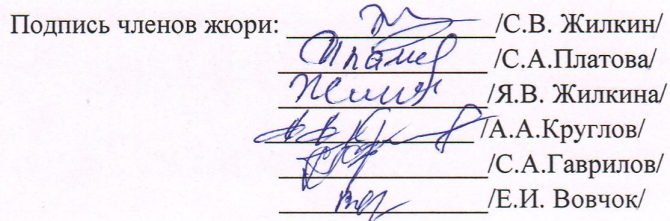 Подпись членов жюри: /С.В. Жилкин/
/С.А.Платова/
/Я.В. Жилкина/
/А.А.Круглов/
/С.А.Гаврилов/
/Е.И. Вовчок/